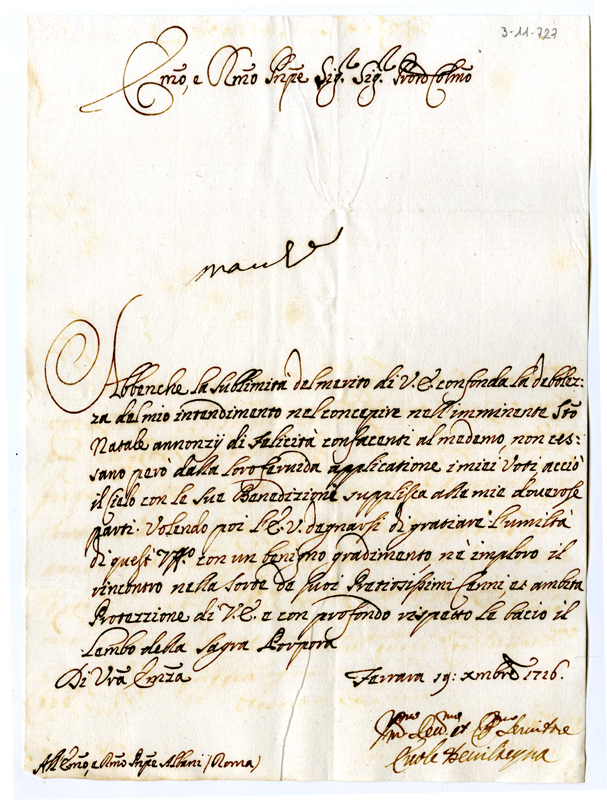 3-11-727
Emo, e Rmo Pnpe Sigr. Sigr. Pron Colmo
Abbenche la sublimità del merito di V.E. confonda la debolez:
za del mio intendimento nel concepire nell'imminente Sto
Natale annonzÿ di Felicità confacenti al medemo, non ces:
sano però dalla loro fervida applicatione i miei Voti acciò
il Cielo con le sue Benedizioni supplisca alle mie doverose
parti. Volendo poi l'E.V. degnarsi di gratiare l'humiltà
di quest'Uffo. con un benigno gradimento nè imploro il
rincontro nella sorte de suoi Pretiosissimi Cenni, et ambita
Protezzione di V.E. e con profondo rispetto le bacio il
Lembo della Sagra Porpora
Di Vra Emza
Ferrara 19: Xmbre 1716.
Umo Dev. et Servitore
All'Emo, e Rmo Pnpe Albani (Roma)